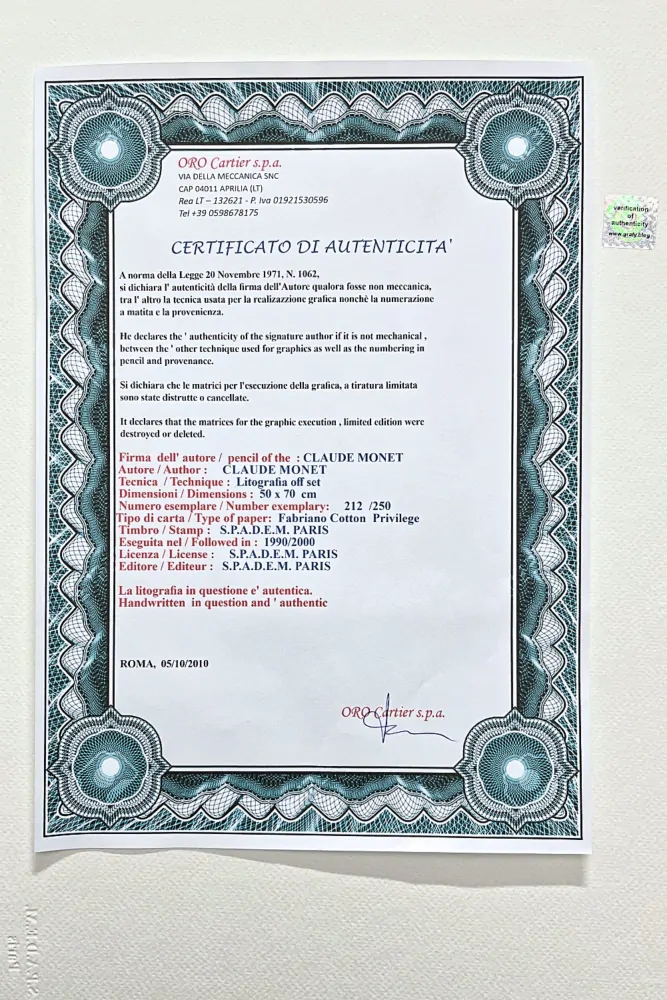 ORO Cartier s.p.a.
VIA DELLA MECCANICA SNC
CAP 04011 APRILIA (LT)
Rea LT – 132621 - P. Iva 01921530596
Tel +39 0598678175
CERTIFICATO DI AUTENTICITA'
A norma della Legge 20 Novembre 1971, N. 1062,
si dichiara l' autenticità della firma dell'Autore qualora fosse non meccanica,
tra l' altro la tecnica usata per la realizazzione grafica nonchè la numerazione
a matita e la provenienza.
He declares the ' authenticity of the signature author if it is not mechanical ,
between the ' other technique used for graphics as well as the numbering in
pencil and provenance.
Si dichiara che le matrici per l'esecuzione della grafica, a tiratura limitata
sono state distrutte o cancellate.
It declares that the matrices for the graphic execution , limited edition were
destroyed or deleted.
Firma dell' autore / pencil of the : CLAUDE MONET
Autore / Author : CLAUDE MONET
Tecnica / Technique : Litografia off set
Dimensioni / Dimensions : 50 x 70 cm
Numero esemplare / Number exemplary: 212 /250
Tipo di carta / Type of paper: Fabriano Cotton Privilege
Timbro / Stamp : S.P.A.D.E.M. PARIS
Eseguita nel / Followed in : 1990/2000
Licenza / License : S.P.A.D.E.M. PARIS
Editore / Editeur : S.P.A.D.E.M. PARIS
La litografia in questione e' autentica.
Handwritten in question and ' authentic
ROMA, 05/10/2010
ORO Cartier s.p.a.
verification
of
authenticity
www.grafy.blog